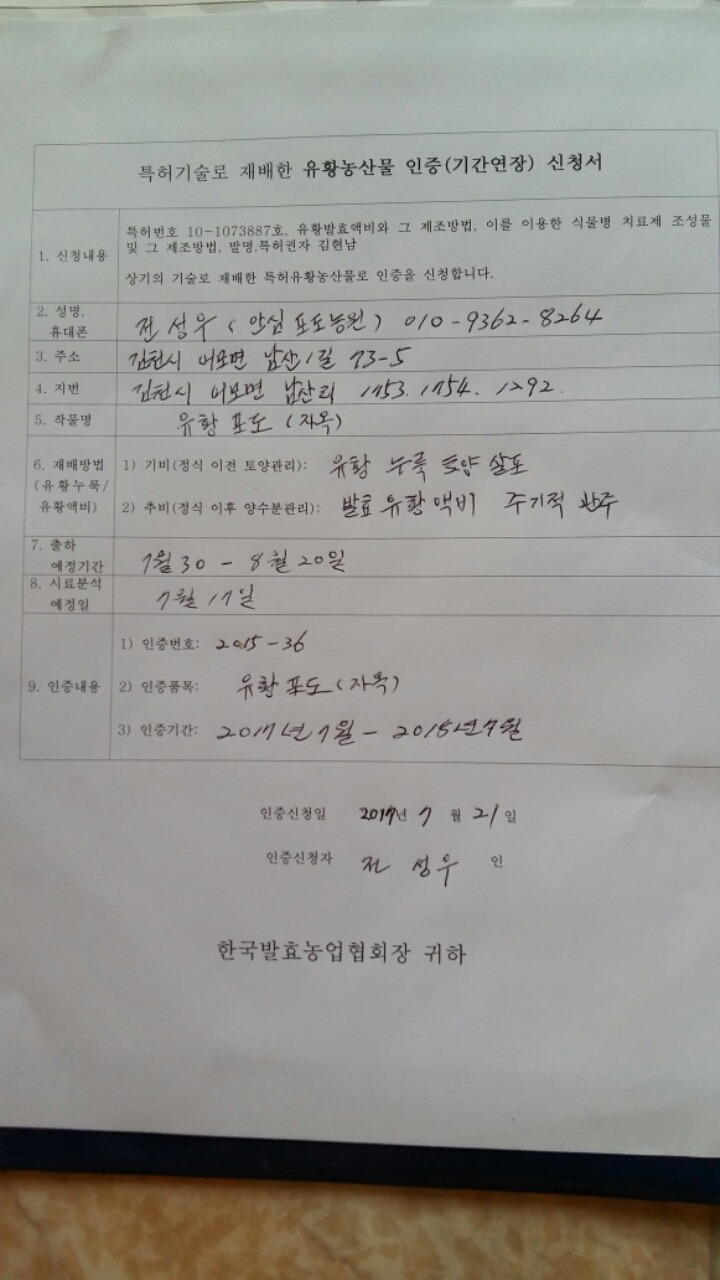 특허기술로 재배한 유황농산물 인증(기간연장) 신청서
1. 신청내용
특허번호 10-1073887호, 유황발효액비와 그 제조방법, 이를 이용한 식물병 치료제 조성물
및 그 제조방법, 발명.특허권자 김현남
상기의 기술로 재배한 특허유황농산물로 인증을 신청합니다.
2. 성명, 휴대폰
전성우 (안심 포도농원) 010-9362-8264
3. 주소
김천시 어모면 남산1길 73-5
4. 지번
김천시 어모면 남산리 1753. 1754. 1292.
5. 작물명
유황 포도 (자옥)
6. 재배방법
(유황누룩/
유황액비)
1) 기비(정식 이전 토양관리): 유황 누룩 토양 살포
2) 추비(정식 이후 양수분관리): 발효 유황 액비 주기적 관주
7. 출하
예정기간
7월 30 - 8월 20일
8. 시료분석
예정일
7월 17일
9. 인증내용
1) 인증번호: 2015-36
2) 인증품목: 유황 포도 (자옥)
3) 인증기간: 2017년 7월 - 2018년 7월
인증신청일 2017년 7 월 21 일
인증신청자 전 성우 인
한국발효농업협회장 귀하